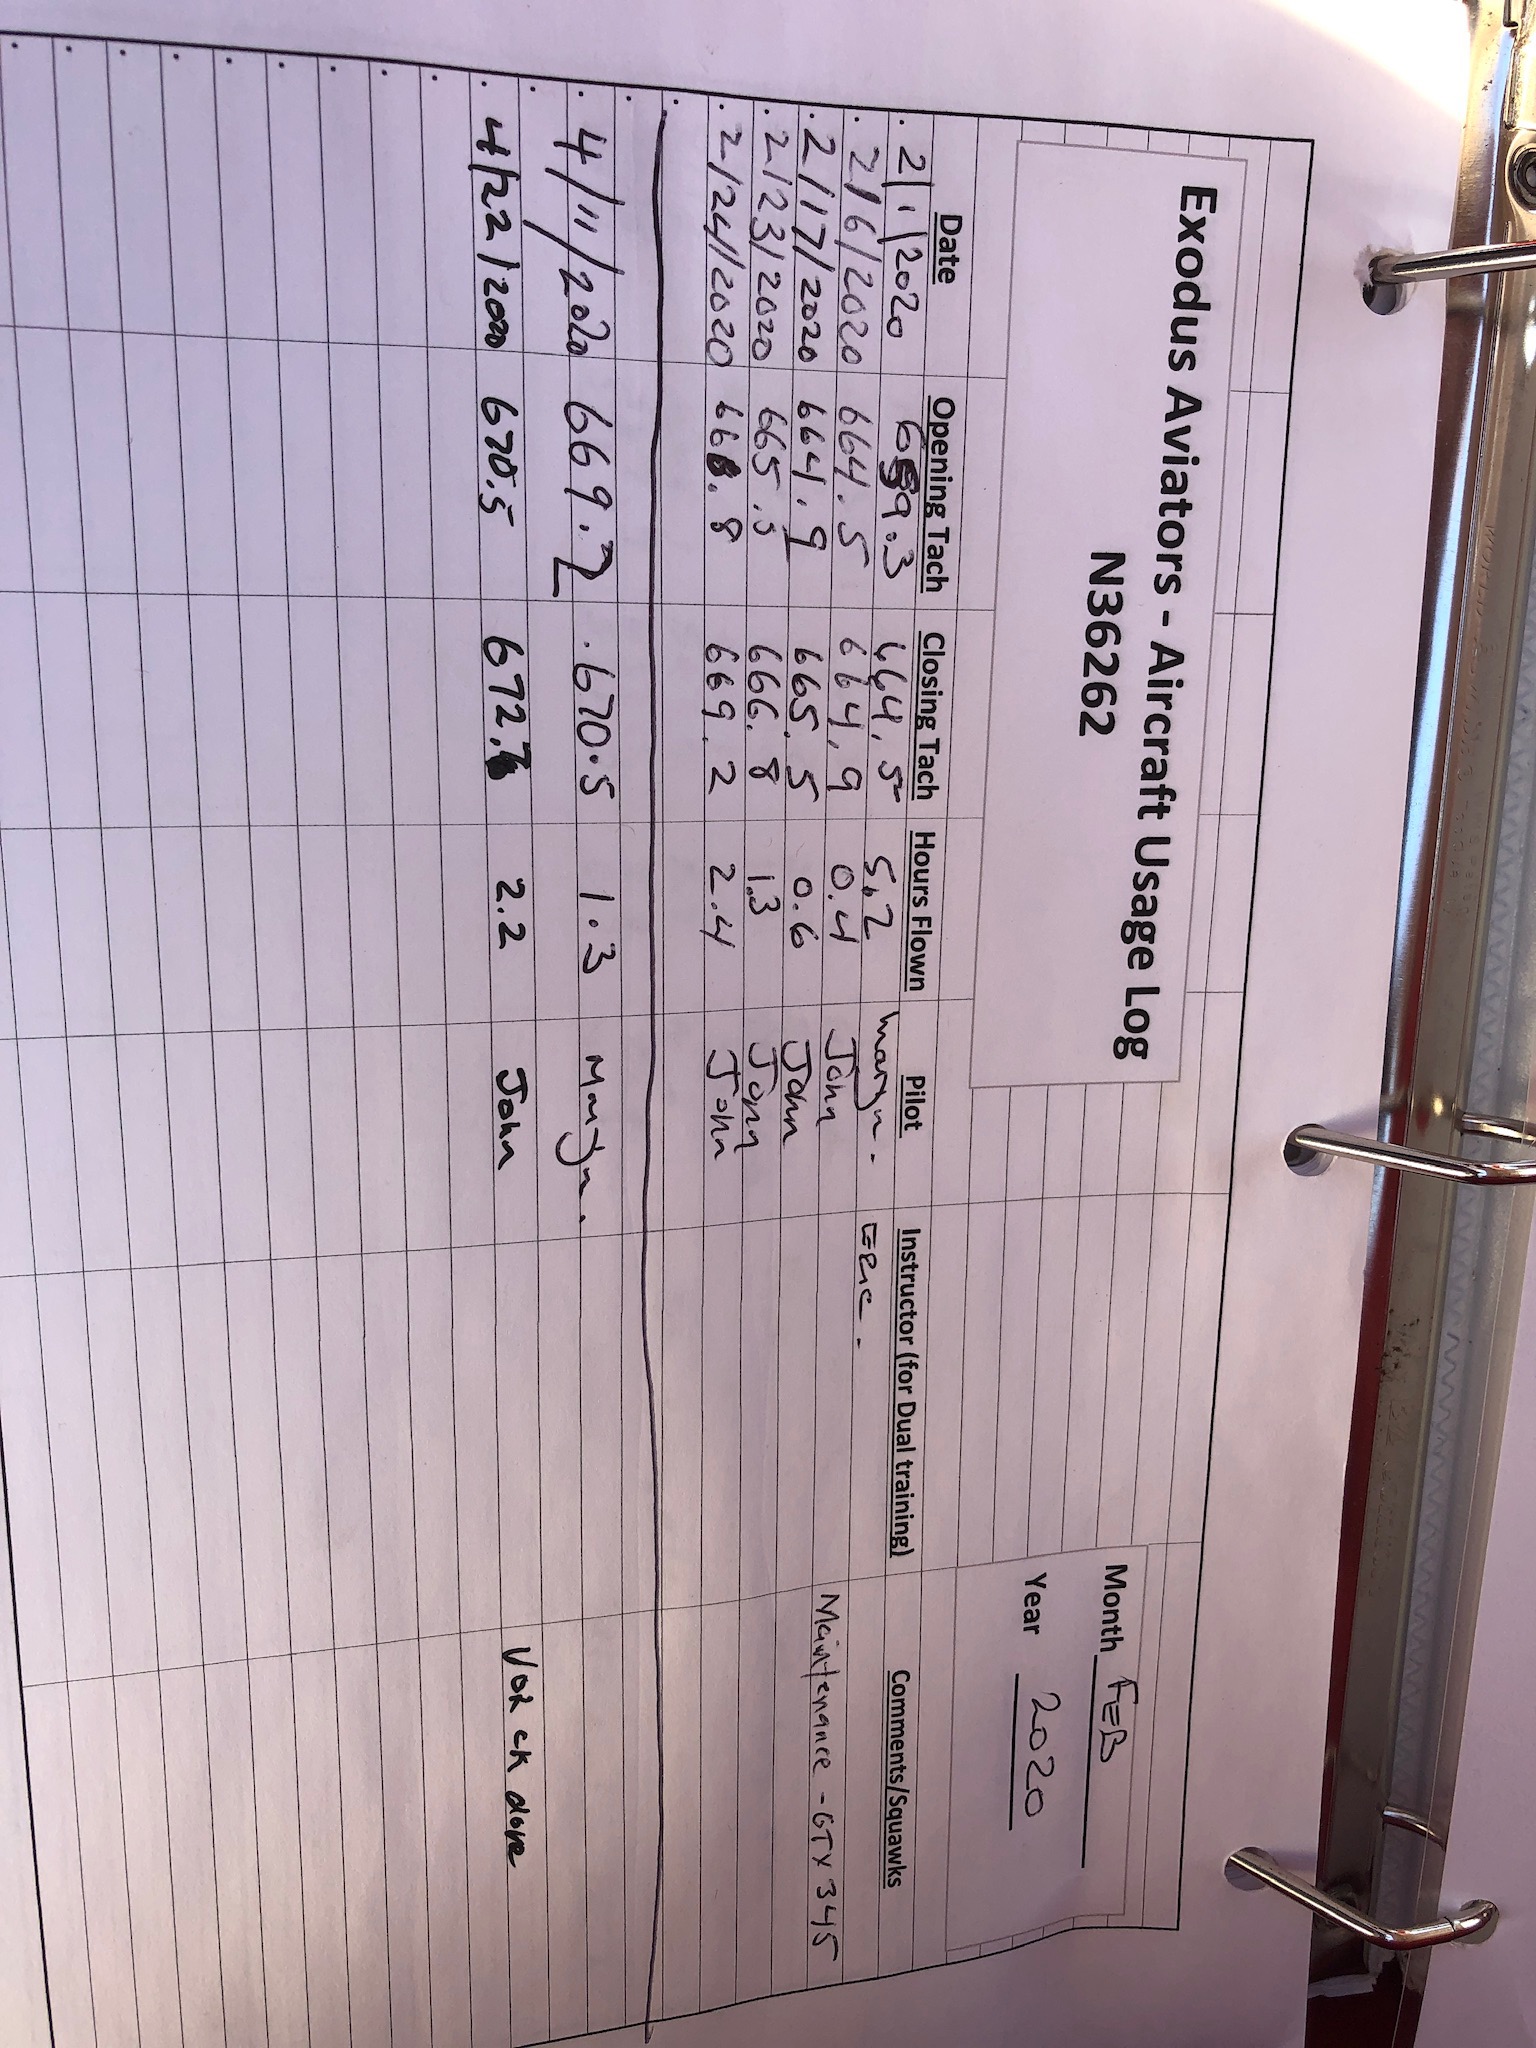 Exodus Aviators - Aircraft Usage Log
N36262
Month FEB
Year 2020
Date Opening Tach Closing Tach Hours Flown Pilot Instructor (for Dual training) Comments/Squawks
2/1/2020 659.3 664.5 5.2 Martyn. ERIC.
2/6/2020 664.5 664.9 0.4 John Maintenance - GTX 345
2/17/2020 664.9 665.5 0.6 John
2/23/2020 665.5 666.8 1.3 John
2/24/2020 666.8 669.2 2.4 John
4/11/2020 669.2 670.5 1.3 Martyn.
4/22/2020 670.5 672.7 2.2 John VOR CK done